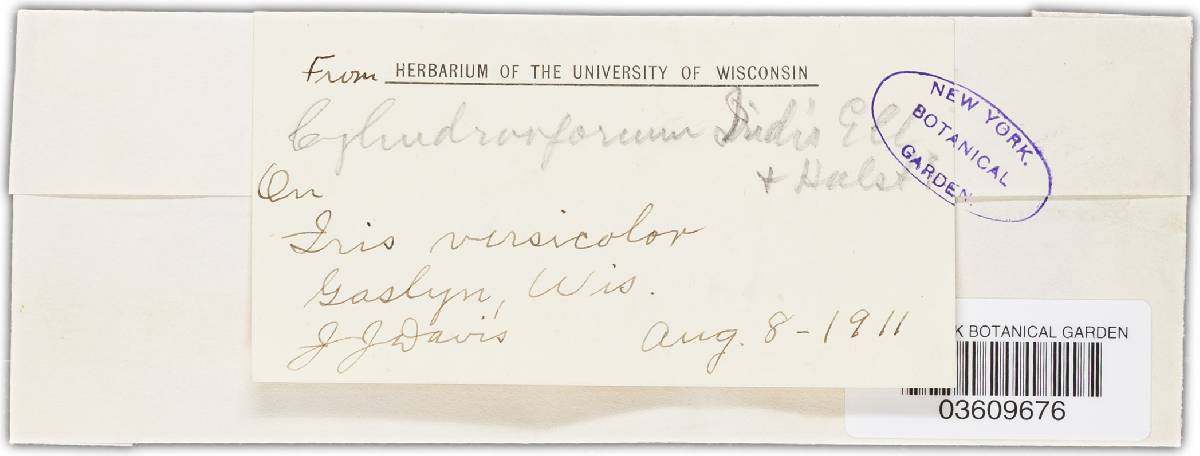 From HERBARIUM OF THE UNIVERSITY OF WISCONSIN
Cylindrosporium Iridis Ell
& Halst
On
Iris versicolor
Gaslyn, Wis.
J J Davis Aug. 8-1911
NEW YORK.
BOTANICAL
GARDEN.
K BOTANICAL GARDEN
03609676